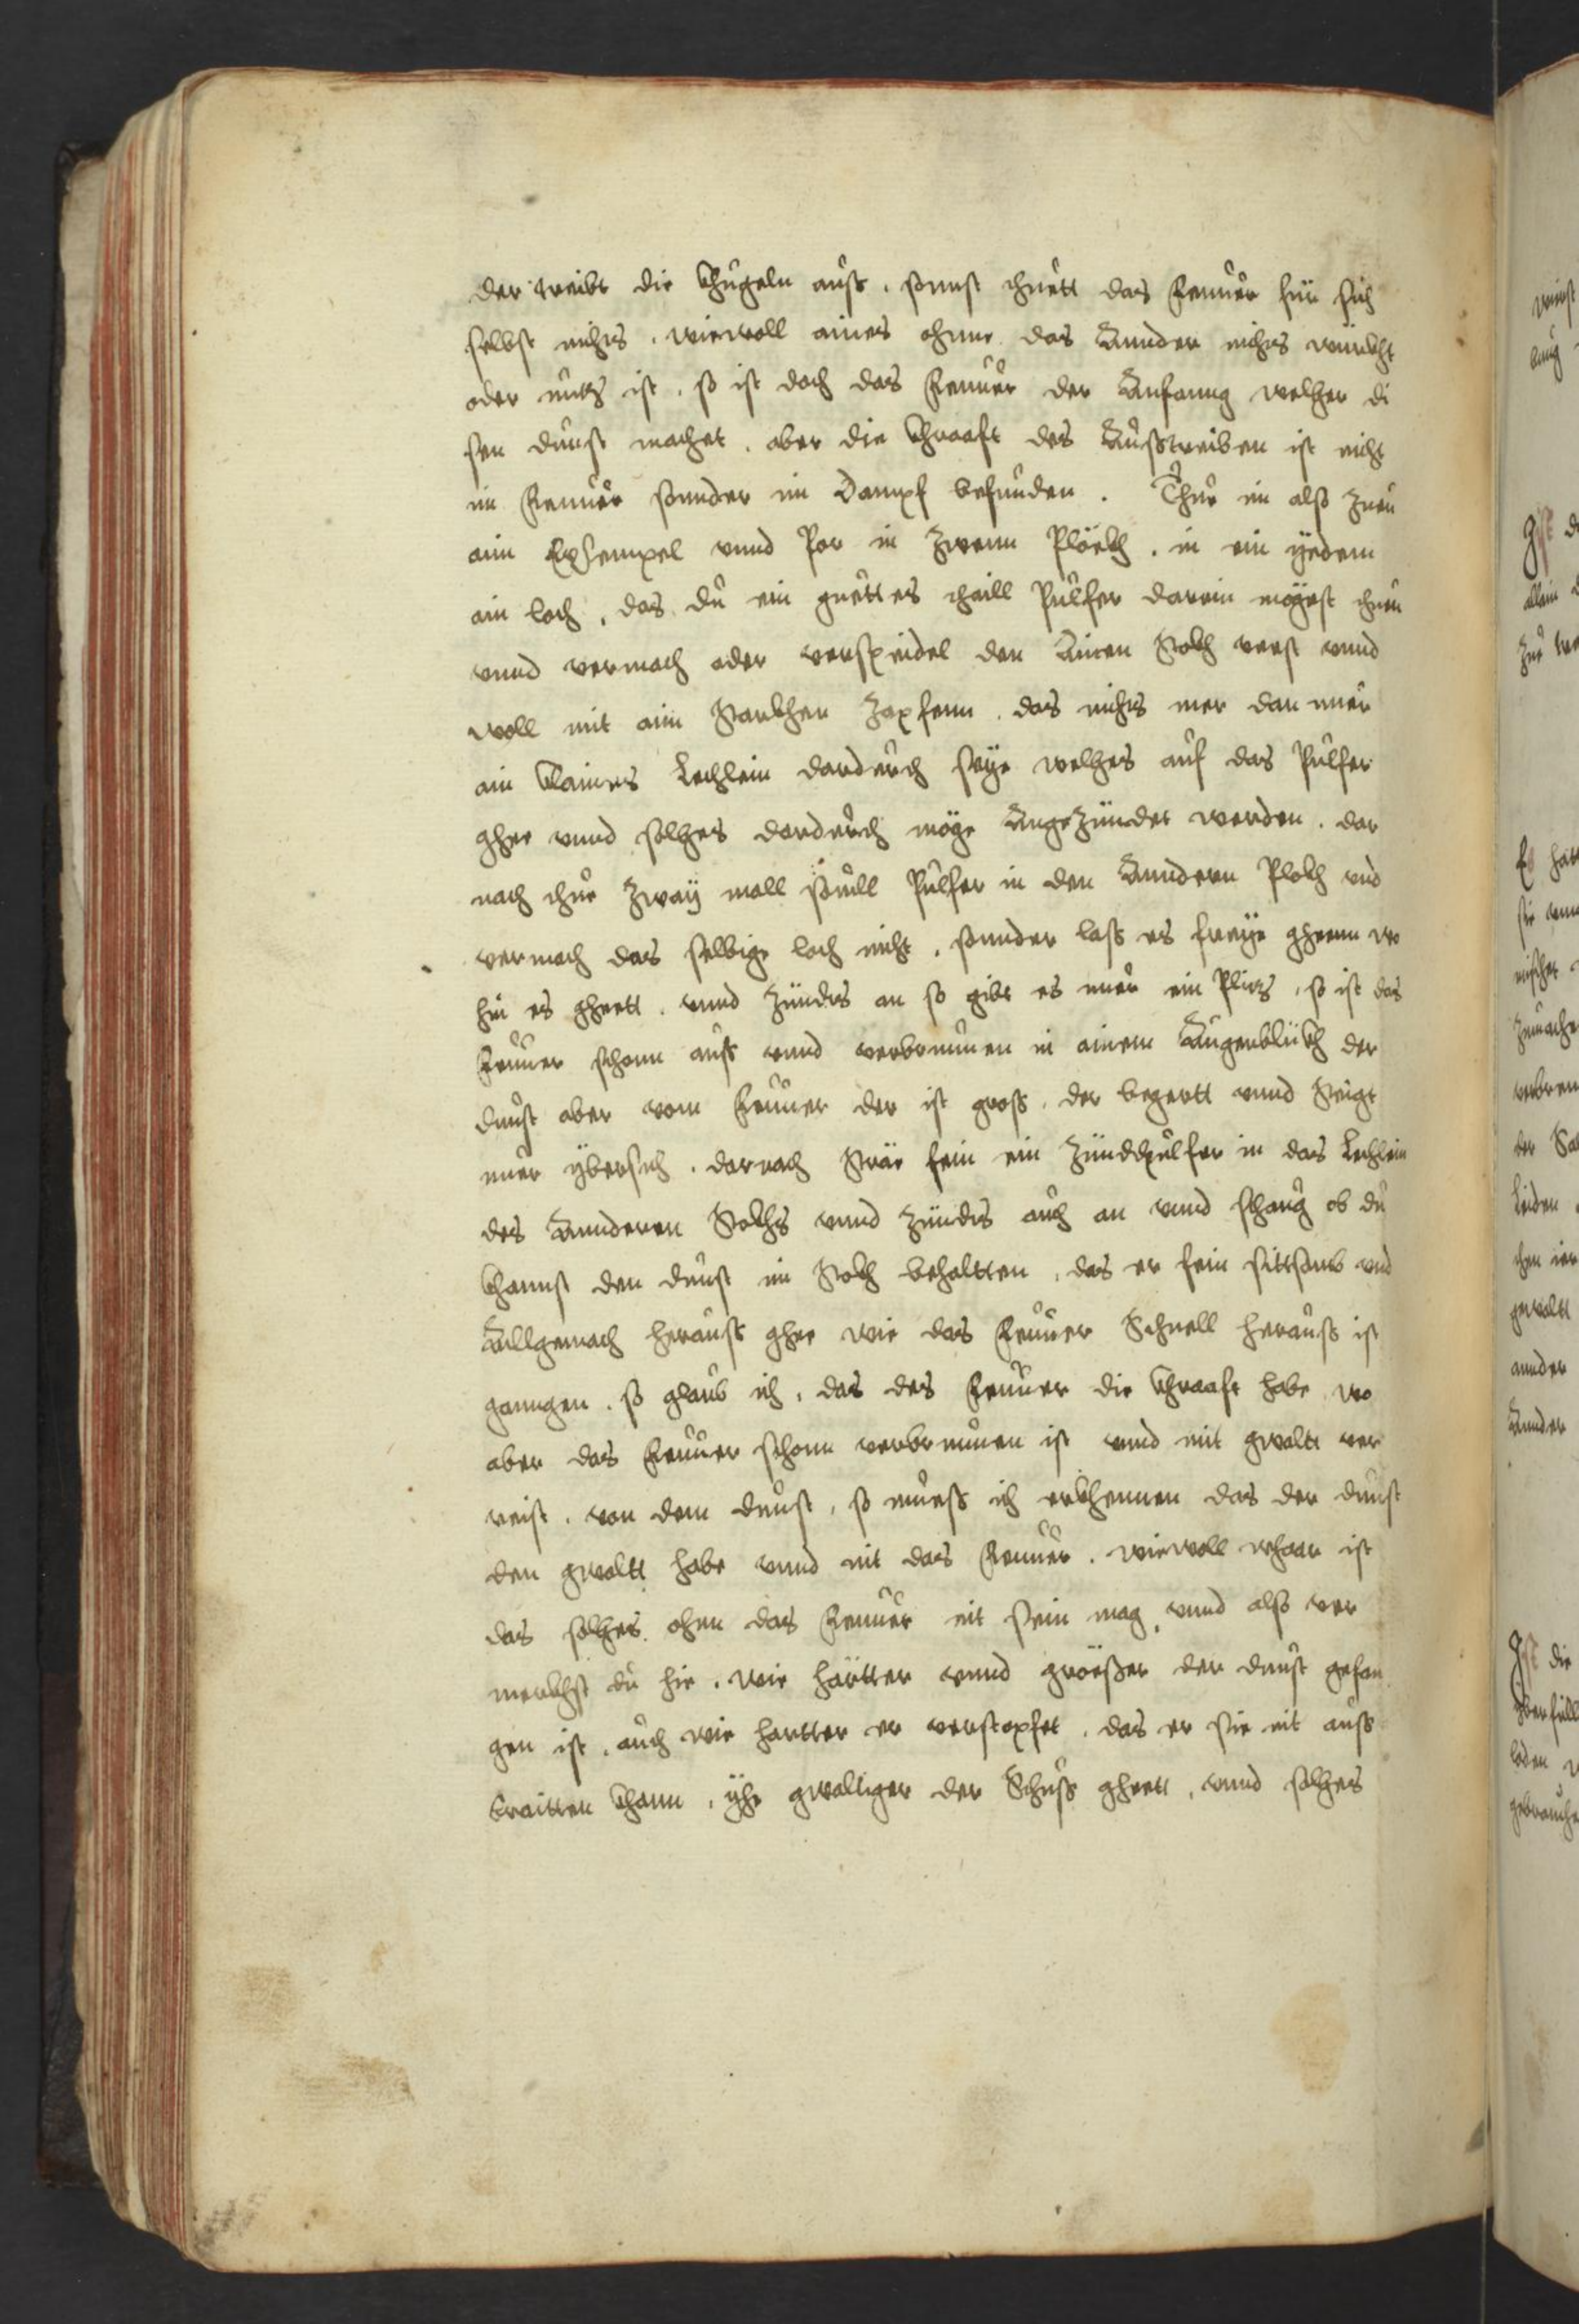 der treibt die Khugeln auß, sonnst thuett das Feuuer für sich
selbst nichts, wiewoll aines ohnne das Annder nichts würckht
oder nutz ist, so ist doch das Feuuer der Anfanng welher di
sen dunst machet, aber die Khraafft des Außtreiben ist nicht
im Feuuer sonnder im Dampf befunden. Thue im also
aim Exsempel vnnd Por in Zwenn Plöckh, in ein yedem
ain loch, das du ein guettes thaill Pulfer darein mögest thuen
vnnd vermach oder verspeidel den Ainen Stockh vest vnnd
woll mit aim Starckhen Zapfenn, das nichts mer dan nuer
ain Klaines Lechlein dardurch seye welhes auf das Pulfer
ghee vnnd solhes dardurch möge Angezündet werden. dar
nach thue Zwaÿ mall souill Pulfer in den Anndern Plockh vnd
vermach das selbige loch nicht, sonnder lass es freye gheenn wo
hin es gheett, vnnd Zündts an so gibt es nuer ein Plitz, so ist das
Feuuer schonn auß vnnd verbrunnen in ainem Augenblickh der
dunst aber vom Feuuer der ist groß, der begertt vnnd Steigt
nuer übersich, darnach Strär fein ein Zündtpulfer in das Lechlein
des Annderen Stockhs vnnd Zündts auch an vnnd schaug ob du
Khannst den dunst im Stockh behaltten, das er fein sittsam vnd
Allgemach herauß ghee wie das Feuuer Schnell herauß ist
ganngen, so glaub ich, das des Feuuer die Khraafft habe, wo
aber das Feuuer schonn verbrunnen ist vnnd mit gwaltt ver
reist, von dem dunst, so mueß ich erkhennen das der dunst
den gwaltt habe vnnd nit das Feuuer, wiewoll whaar ist
das solhes ohnn das Feuuer nit sein mag, vnnd also ver
merckhst du hie, wie härtter vnnd größer der dunst gefan
gen ist, auch wie hartter er verstopfet, das er sie nit auß
braitten khann, yhe gwaltiger der Schuß gheett, vnnd solhes